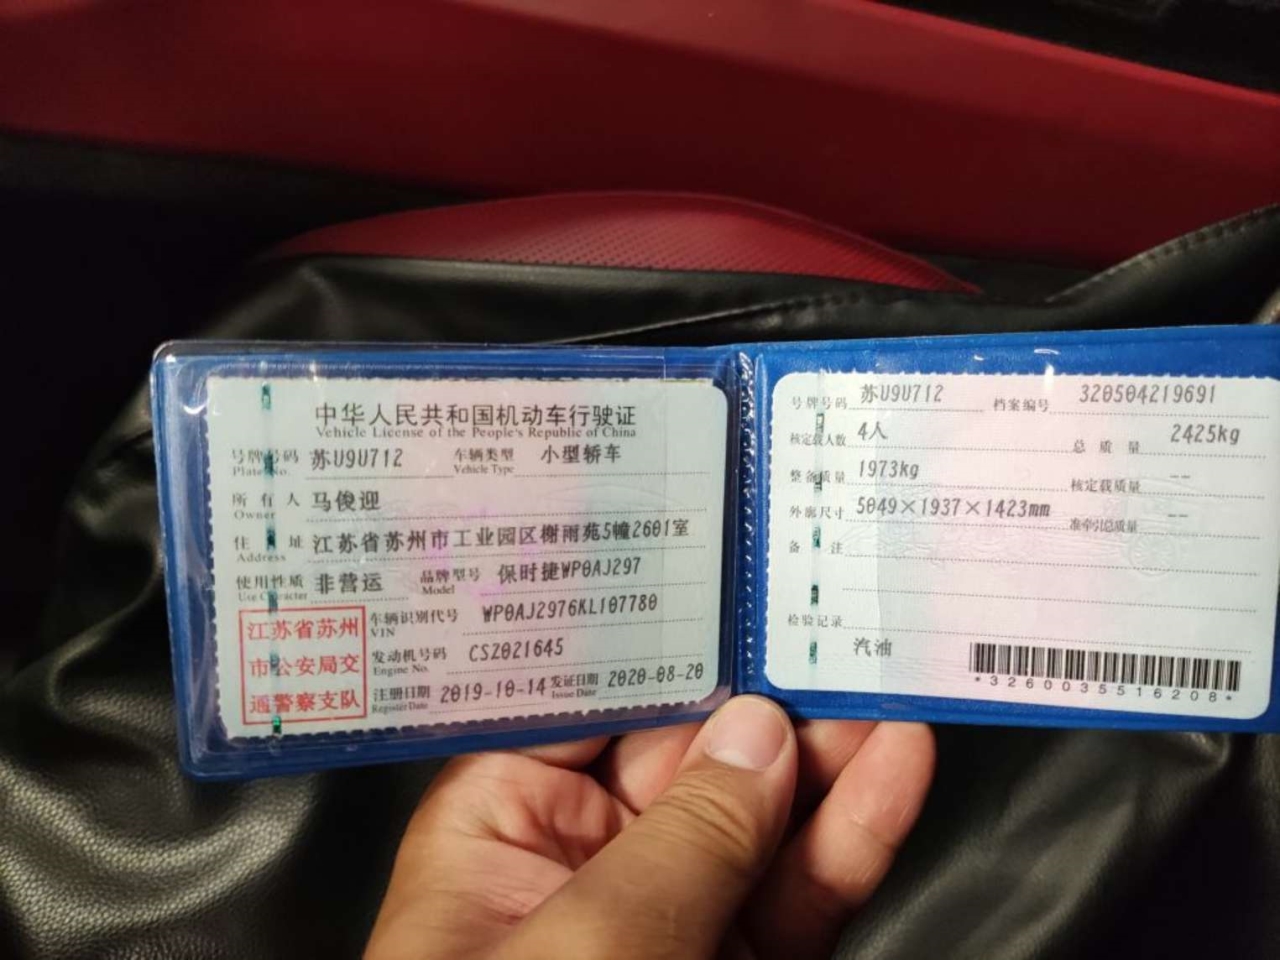 中华人民共和国机动车行驶证
Vehicle License of the People's Republic of China
号牌号码 苏U9U712 车辆类型 小型轿车
Plate No. Vehicle Type
所有人 马俊迎
Owner
住址 江苏省苏州市工业园区榭雨苑5幢2601室
Address
使用性质 非营运 品牌型号 保时捷WP0AJ297
Use Character Model
江苏省苏州
市公安局交
通警察支队
车辆识别代号 WP0AJ2976KL107780
VIN
发动机号码 CSZ021645
Engine No.
注册日期 2019-10-14 发证日期 2020-08-20
Register Date Issue Date
号牌号码 苏U9U712 档案编号 320504219691
核定载人数 4人 总质量 2425kg
整备质量 1973kg 核定载质量 --
外廓尺寸 5049×1937×1423mm 准牵引总质量 --
备注
检验记录
汽油
*3260035516208*